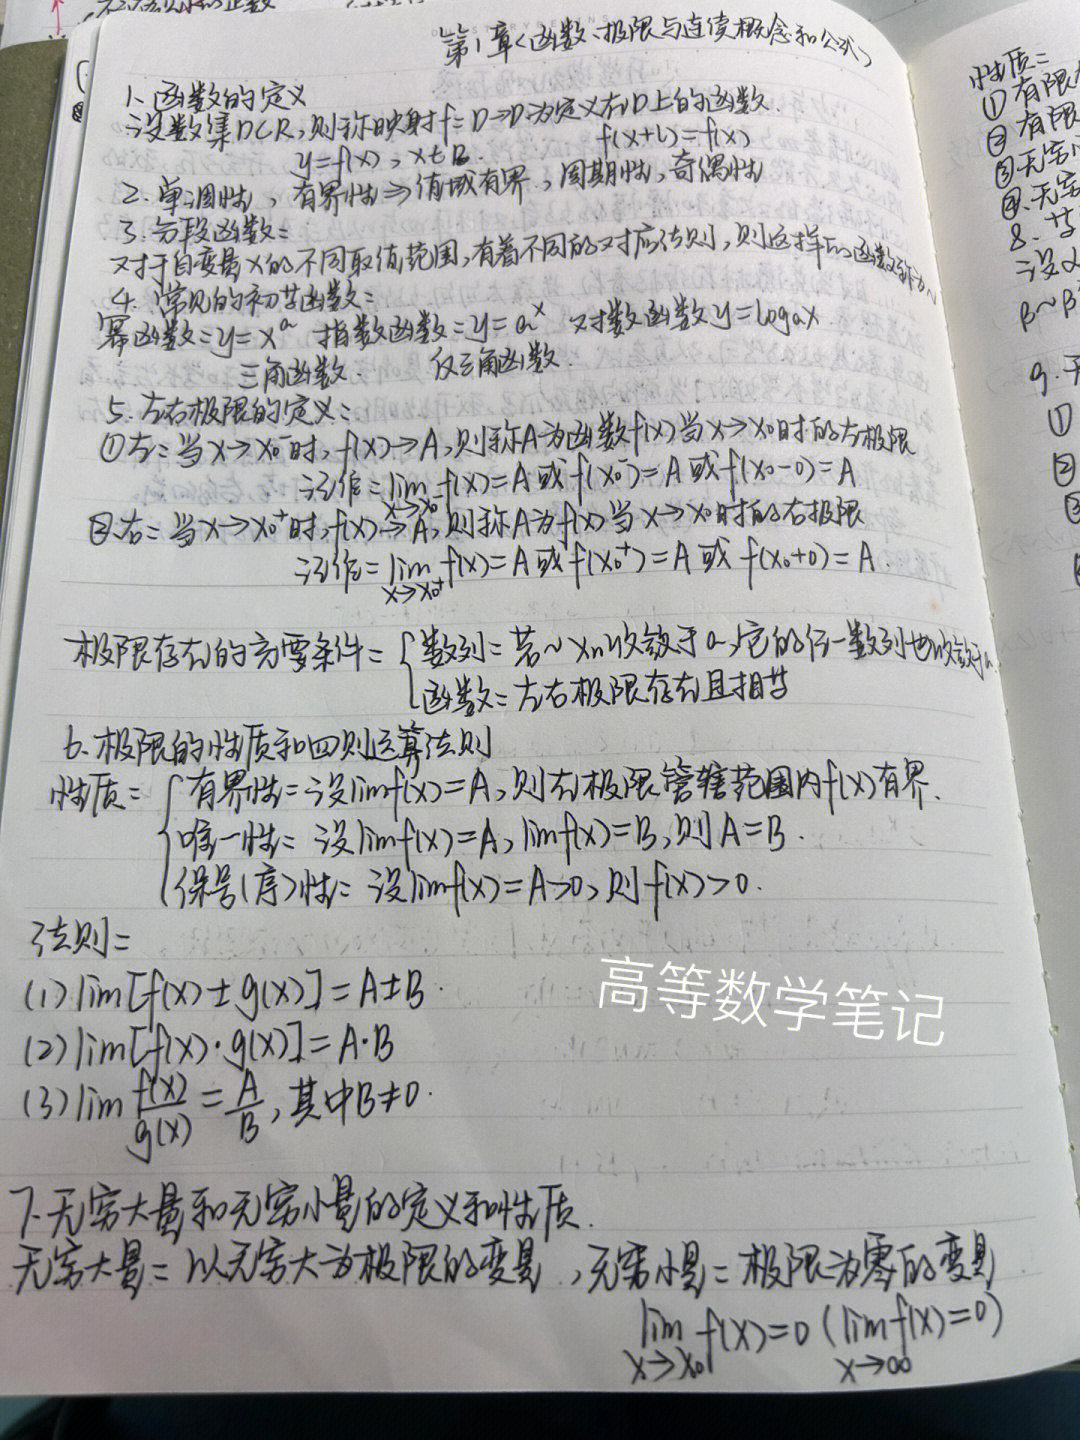 第1章(函数、极限与连续概念和公式)
1、函数的定义
设数集D⊂R,则称映射f:D→D为定义在D上的函数
y=f(x),x∈D.
f(x+l)=f(x)
2.单调性,有界性⇒值域有界,周期性,奇偶性
3.分段函数:
对于自变量x的不同取值范围,有着不同的对应法则,则这样的函数称为~
4.常见的初等函数:
幂函数:y=xᵃ 指数函数:y=aˣ 对数函数y=logax
三角函数. 反三角函数.
5.左右极限的定义:
①左:当x→x0⁻时,f(x)→A,则称A为函数f(x)当x→x0时的左极限
记作:lim f(x)=A或f(x0⁻)=A或f(x0-0)=A
x→x0⁻
②右:当x→x0⁺时,f(x)→A,则称A为f(x)当x→x0时的右极限
记作:lim f(x)=A或f(x0⁺)=A或f(x0+0)=A
x→x0⁺
极限存在的充要条件:{数列:若~xn收敛于a,它的任一数列也收敛于a.
函数:左右极限存在且相等
6.极限的性质和四则运算法则
性质:{有界性:设limf(x)=A,则在极限管辖范围内f(x)有界.
唯一性:设limf(x)=A,limf(x)=B,则A=B.
保号(序)性:设limf(x)=A>0,则f(x)>0.
法则:
(1)lim[f(x)±g(x)]=A±B.
(2)lim[f(x)·g(x)]=A·B
(3)lim f(x)/g(x)=A/B,其中B≠0.
高等数学笔记
7.无穷大量和无穷小量的定义和性质.
无穷大量:以无穷大为极限的变量,无穷小量:极限为零的变量
lim f(x)=0(limf(x)=0)
x→x0 x→∞
性质:
①有限
②有限
③无穷小
④.无穷
8.等
设α
β~β
9.无
①
②
③